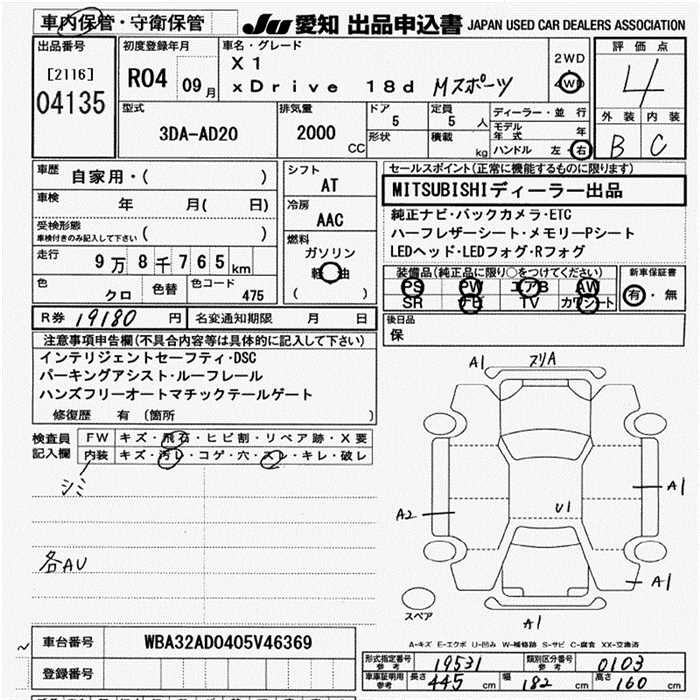 車内保管・守衛保管
JU 愛知 出品申込書 JAPAN USED CAR DEALERS ASSOCIATION
出品番号
[2116]
04135
初度登録年月
R04 09月
車名・グレード
X1
xDrive 18d Mスポーツ
2WD
4WD
評価点
4
外装 内装
B C
型式
3DA-AD20
排気量
2000 CC
ドア
5
形状
定員
5 人
積載 kg
ディーラー・並行
モデル年式 年
ハンドル 左・右
車歴
自家用・( )
車検
年 月( 日)
受検形態
車検付きのみ記入して下さい ( )
走行
9万8千765km
色
クロ
色替
色コード
475
シフト
AT
冷房
AAC
燃料
ガソリン
軽油
( )
セールスポイント(正常に機能するものに限ります)
MITSUBISHIディーラー出品
純正ナビ・バックカメラ・ETC
ハーフレザーシート・メモリーPシート
LEDヘッド・LEDフォグ・Rフォグ
装備品(純正品に限り○をつけてください)
PS PW エアB AW
SR TV カワシート
新車保証書
有・無
後日品
保
R券 19180 円
名変通知期限 月 日
注意事項申告欄(不具合内容等は具体的に記入して下さい)
インテリジェントセーフティ・DSC
パーキングアシスト・ルーフレール
ハンズフリーオートマチックテールゲート
修復歴 有 (箇所 )
検査員記入欄
FW キズ・飛石・ヒビ割・リペア跡・X要
内装 キズ・汚レ・コゲ・穴・スレ・キレ・破レ
シミ
各AU
A1 ヌリA
A1
A2
U1
A1
A1
スペア
A-キズ E-エクボ U-凹み W-補修跡 S-サビ C-腐食 XX-交換済
車台番号
WBA32AD0405V46369
登録番号
形式指定番号 参考 19531
類別区分番号 参考 0103
車庫証明用 参考 長さ 445 cm 幅 182 cm 高さ 160 cm